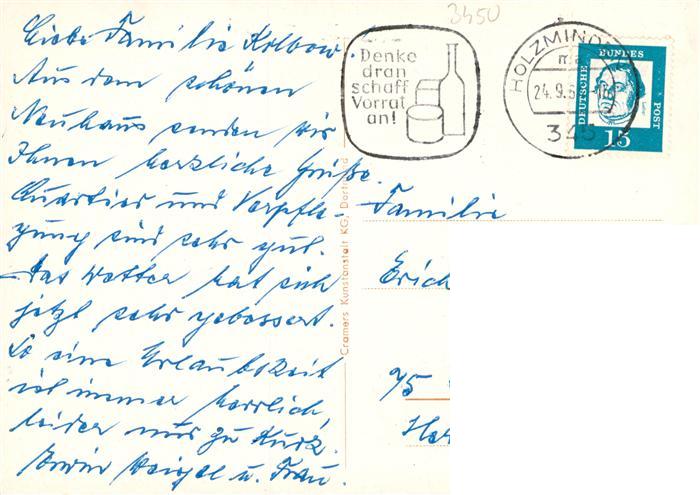 Liebe Familie Kolbow.
Aus dem schönen
Neuhaus senden wir
Ihnen herzliche Grüße.
Quartier und Verpfle-
gung sind sehr gut.
Das Wetter hat sich
jetzt sehr gebessert.
So eine Urlaubszeit
ist immer herrlich,
leider nur zu kurz.
Erwin Weigel u. Frau.
3450
Denke
dran
schaff
Vorrat
an!
HOLZMINDEN
24.9.6
345
DEUTSCHE BUNDESPOST
15
Cramers Kunstanstalt KG, Dortmund
Familie
Erich
75